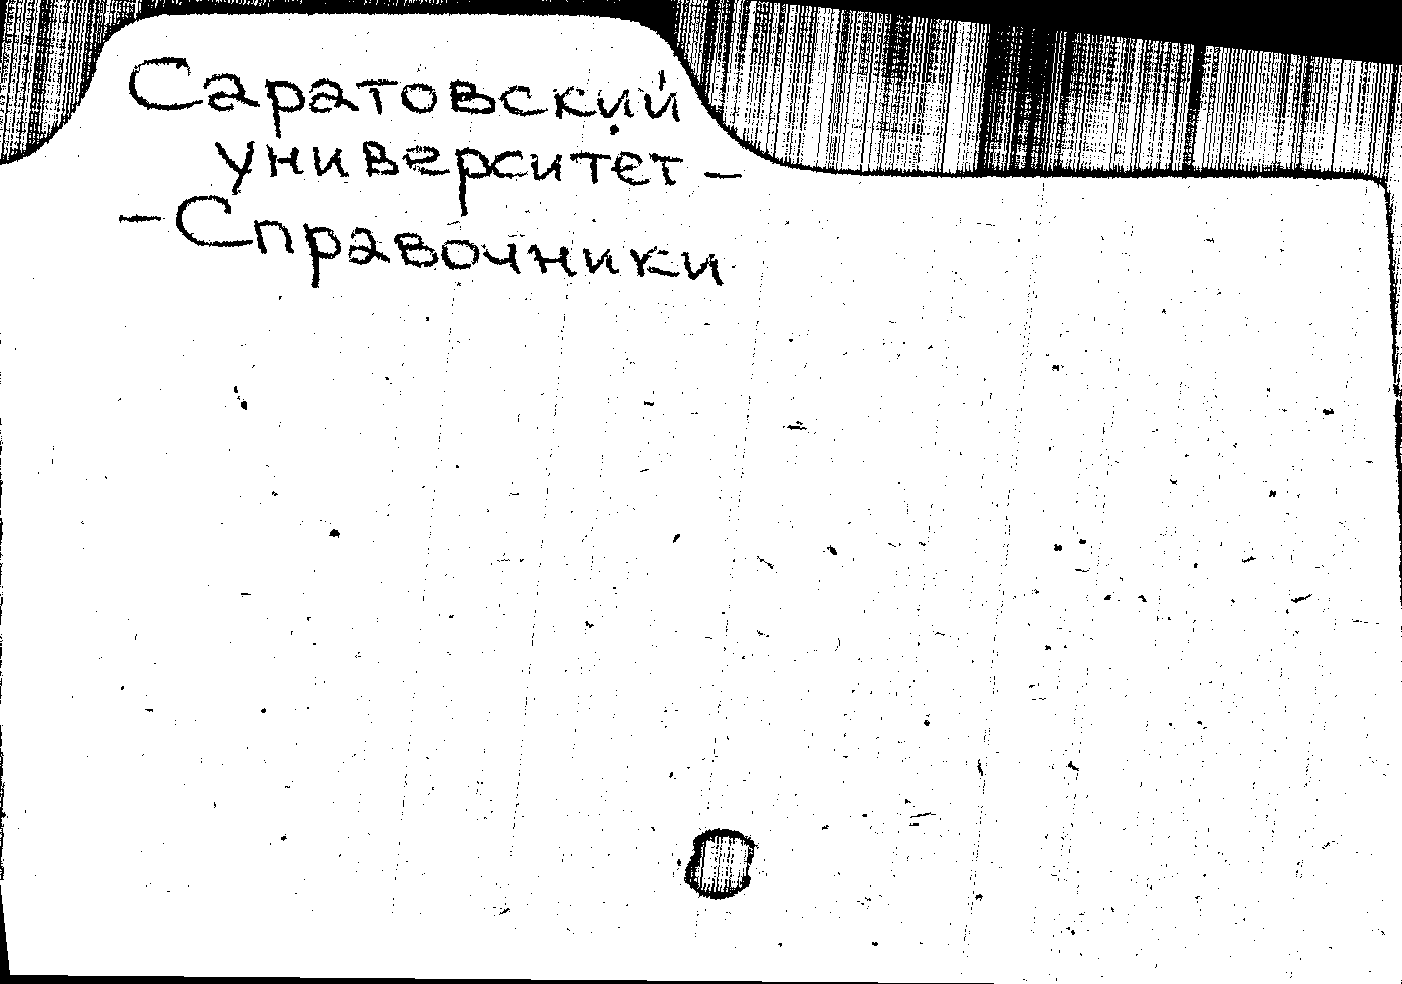 Саратовский
университет –
– Справочники